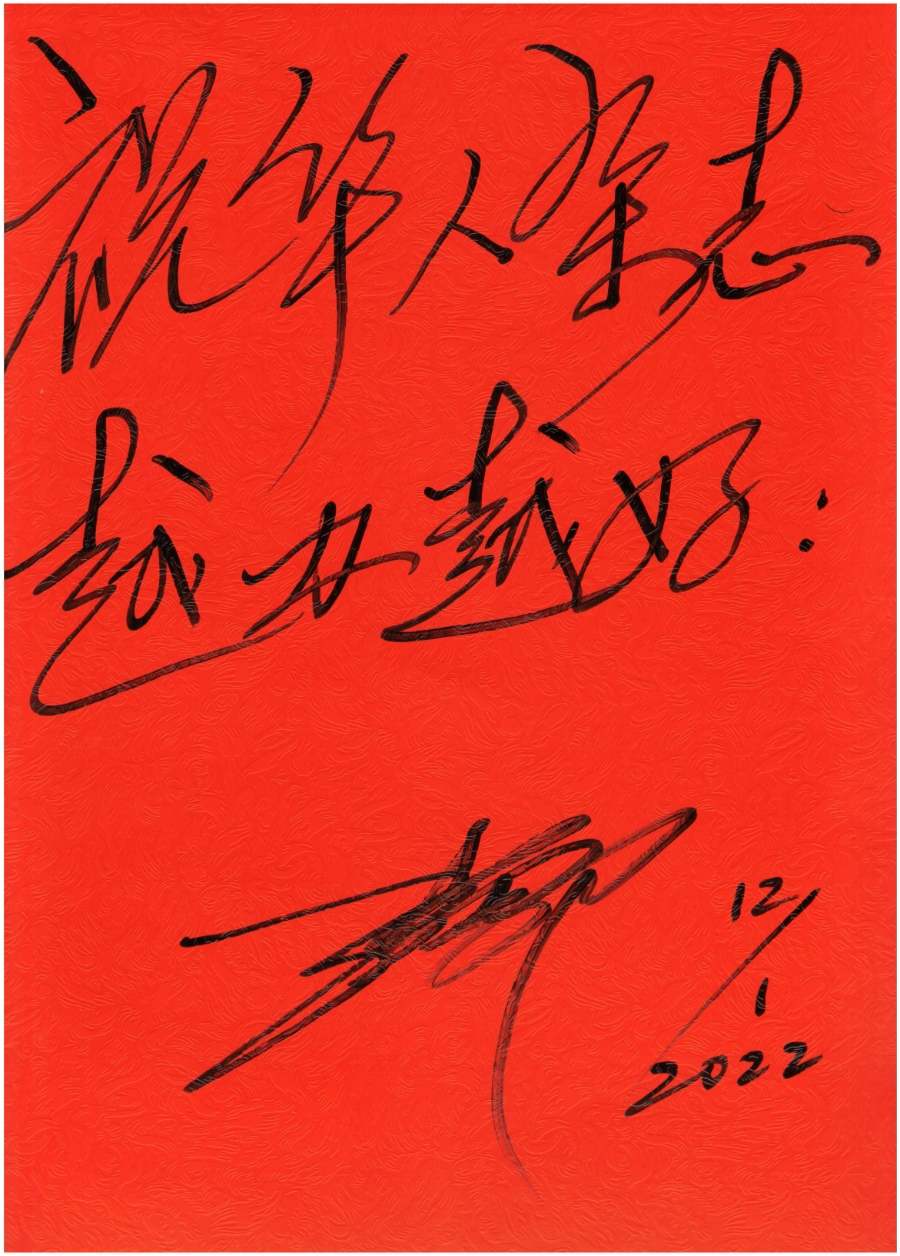 祝华人杂志
越办越好:
12/1
2022